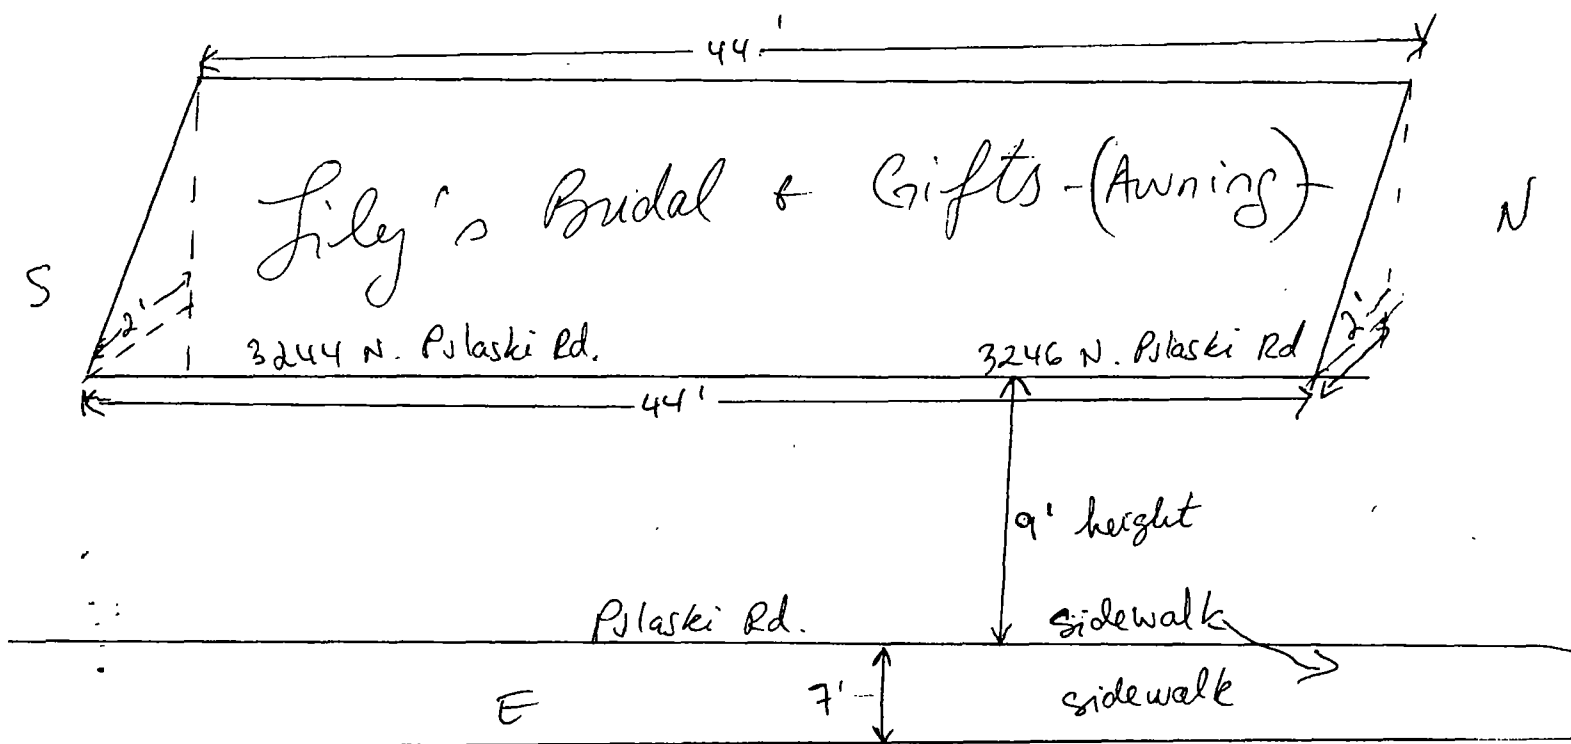 44'
Lily's Bridal & Gifts - (Awning) -
N
S
2'
2'
3244 N. Pulaski Rd.
3246 N. Pulaski Rd
44'
9' height
Pulaski Rd.
sidewalk
E
7'
sidewalk